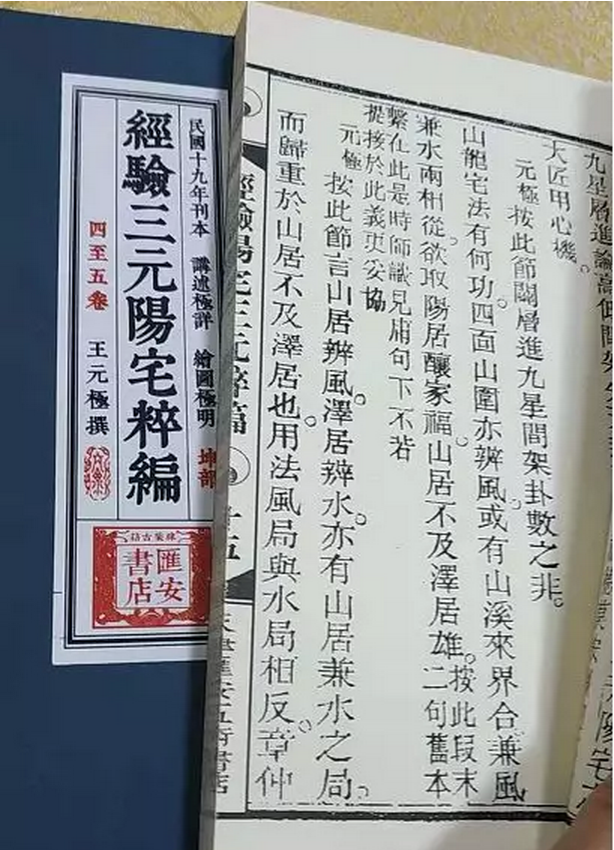 九星層進論高低
大匠用心機。
元極按此節闢層進九星間架卦數之非。
山龍宅法有何功。四面山圍亦辨風。或有山溪來界合兼風
兼水兩相從。欲取陽居釀家福。山居不及澤居雄。按此段末
二句舊本
繫在此是時師識見庸句下不若
提接於此義更妥協
元極按此節言山居辨風。澤居辨水。亦有山居兼水之局。
而歸重於山居不及澤居也。用法風局與水局相反。章仲
經驗陽宅三元粹篇
十五
民國十九年刊本 講述極詳 繪圖極明 坤部
經驗三元陽宅粹編
四至五卷 王元極撰
匯安書店